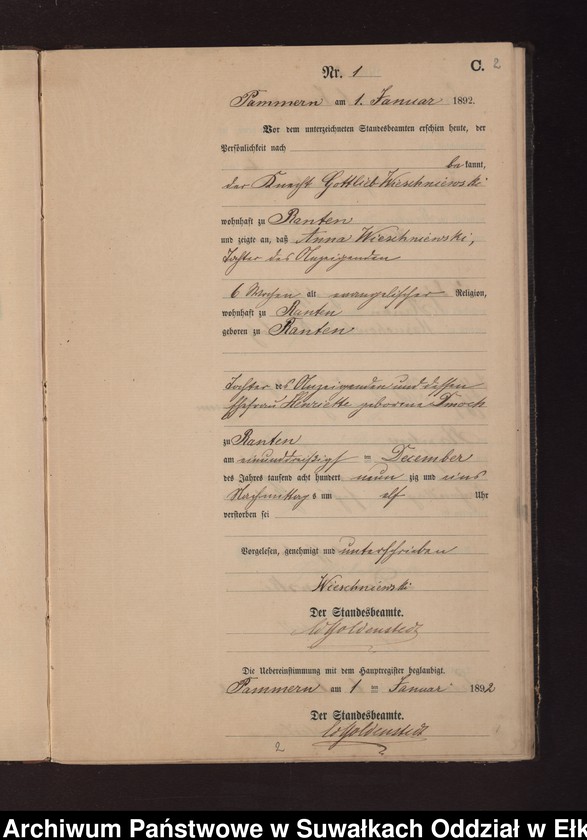 Nr. 1
C. 2
Pammern am 1. Januar 1892.
Vor dem unterzeichneten Standesbeamten erschien heute, der
Persönlichkeit nach
bekannt,
der Knecht Gottlieb Wieschniewski
wohnhaft zu Ranten
und zeigte an, daß Anna Wieschniewski,
Tochter des Anzeigenden
6 Wochen alt evangelischer Religion,
wohnhaft zu Ranten
geboren zu Ranten
Tochter des Anzeigenden und dessen
Ehefrau Henriette geborene Dmoch
zu Ranten
am einunddreißigst = December
des Jahres tausend acht hundert neunzig und eins
Nachmittags um elf Uhr
verstorben sei
Vorgelesen, genehmigt und unterschrieben
Wieschniewski
Der Standesbeamte.
Goldenstedt
Die Uebereinstimmung mit dem Hauptregister beglaubigt.
Pammern am 1 = Januar 1892
Der Standesbeamte.
Goldenstedt
2
Archiwum Państwowe w Suwałkach Oddział w Ełk